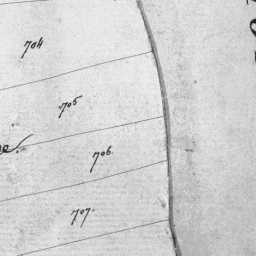 704
705
706.
707.